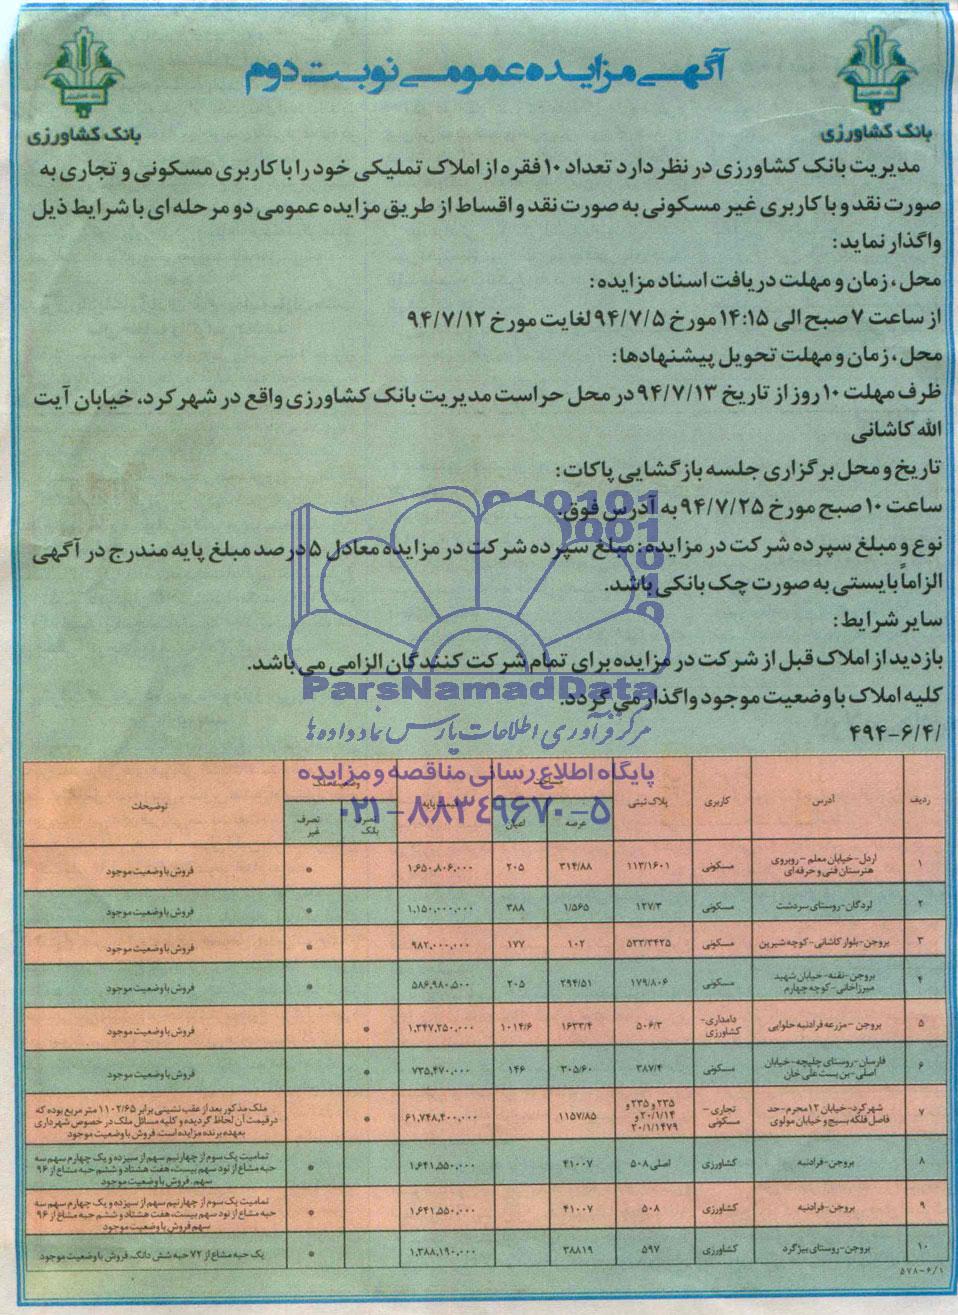 آگهی مزایده عمومی نوبت دوم
بانک کشاورزی
بانک کشاورزی
مدیریت بانک کشاورزی در نظر دارد تعداد ۱۰ فقره از املاک تملیکی خود را با کاربری مسکونی و تجاری به
صورت نقد و با کاربری غیر مسکونی به صورت نقد و اقساط از طریق مزایده عمومی دو مرحله ای با شرایط ذیل
واگذار نماید:
محل، زمان و مهلت دریافت اسناد مزایده:
از ساعت ۷ صبح الی ۱۴:۱۵ مورخ ۹۴/۷/۵ لغایت مورخ ۹۴/۷/۱۲
محل، زمان و مهلت تحویل پیشنهادها:
ظرف مهلت ۱۰ روز از تاریخ ۹۴/۷/۱۳ در محل حراست مدیریت بانک کشاورزی واقع در شهرکرد، خیابان آیت
الله کاشانی
تاریخ و محل برگزاری جلسه بازگشایی پاکات:
ساعت ۱۰ صبح مورخ ۹۴/۷/۲۵ به آدرس فوق.
نوع و مبلغ سپرده شرکت در مزایده: مبلغ سپرده شرکت در مزایده معادل ۵ درصد مبلغ پایه مندرج در آگهی
الزاماً بایستی به صورت چک بانکی باشد.
سایر شرایط:
بازدید از املاک قبل از شرکت در مزایده برای تمام شرکت کنندگان الزامی می باشد.
کلیه املاک با وضعیت موجود واگذار می گردد.
۴۹۴-۶/۴/
010101
001
ParsNamadData
مرکز فرآوری اطلاعات پارس نماد داده ها
پایگاه اطلاع رسانی مناقصه و مزایده
۰۲۱-۸۸۳٤۹۶۷۰-۵
ردیف آدرس کاربری پلاک ثبتی مساحت عرصه اعیان قیمت پایه وضعیت ملک تصرف بانک تصرف غیر توضیحات
۱ اردل-خیابان معلم-روبروی هنرستان فنی و حرفه ای مسکونی ۱۱۳/۱۶۰۱ ۳۱۴/۸۸ ۲۰۵ ۱,۶۵۰,۸۰۶,۰۰۰ * فروش با وضعیت موجود
۲ لردگان-روستای سردشت مسکونی ۱۲۷/۳ ۱/۵۶۵ ۳۸۸ ۱,۱۵۰,۰۰۰,۰۰۰ * فروش با وضعیت موجود
۳ بروجن-بلوار کاشانی-کوچه شیرین مسکونی ۵۳۳/۳۴۲۵ ۱۰۲ ۱۷۷ ۹۸۲,۰۰۰,۰۰۰ * فروش با وضعیت موجود
۴ بروجن-نقنه-خیابان شهید میرزاخانی-کوچه چهارم مسکونی ۱۷۹/۸۰۶ ۲۹۴/۵۱ ۲۰۵ ۵۸۶,۹۸۰,۵۰۰ * فروش با وضعیت موجود
۵ بروجن-مزرعه فرادنبه حلوایی دامداری-کشاورزی ۵۰۶/۳ ۱۶۳۳/۴ ۱۰۱۴/۶ ۱,۳۴۷,۲۵۰,۰۰۰ * فروش با وضعیت موجود
۶ فارسان-روستای چلیچه-خیابان اصلی-بن بست علی خان مسکونی ۳۸۷/۴ ۳۰۵/۶۰ ۱۴۶ ۷۳۵,۴۷۰,۰۰۰ * فروش با وضعیت موجود
۷ شهرکرد-خیابان ۱۲ محرم-حد فاصل فلکه بسیج و خیابان مولوی تجاری-مسکونی ۲۳۵ و ۲۳۵ و ۲۰/۱/۱۴ و ۲۰/۱/۱۴۷۹ ۱۱۵۷/۸۵ ۶۱,۷۴۸,۴۰۰,۰۰۰ * ملک مذکور بعد از عقب نشینی برابر ۱۱۰۲/۶۵ متر مربع بوده که در قیمت آن لحاظ گردیده و کلیه مسائل ملک در خصوص شهرداری بعهده برنده مزایده است. فروش با وضعیت موجود
۸ بروجن-فرادنبه کشاورزی ۵۰۸ اصلی ۴۱۰۰۷ ۱,۶۴۱,۵۵۰,۰۰۰ * تمامیت یک سوم از چهارنیم سهم از سیزده و یک چهارم سهم سه حبه مشاع از نود سهم بیست، هفت هشتاد و ششم حبه مشاع از ۹۶ سهم. فروش با وضعیت موجود
۹ بروجن-فرادنبه کشاورزی ۵۰۸ ۴۱۰۰۷ ۱,۶۴۱,۵۵۰,۰۰۰ * تمامیت یک سوم از چهارنیم سهم از سیزده و یک چهارم سهم سه حبه مشاع از نود سهم بیست، هفت هشتاد و ششم حبه مشاع از ۹۶ سهم فروش با وضعیت موجود
۱۰ بروجن-روستای بیژگرد کشاورزی ۵۹۷ ۳۸۸۱۹ ۱,۳۸۸,۱۹۰,۰۰۰ * یک حبه مشاع از ۷۲ حبه شش دانگ، فروش با وضعیت موجود
۵۷۸-۶/۱